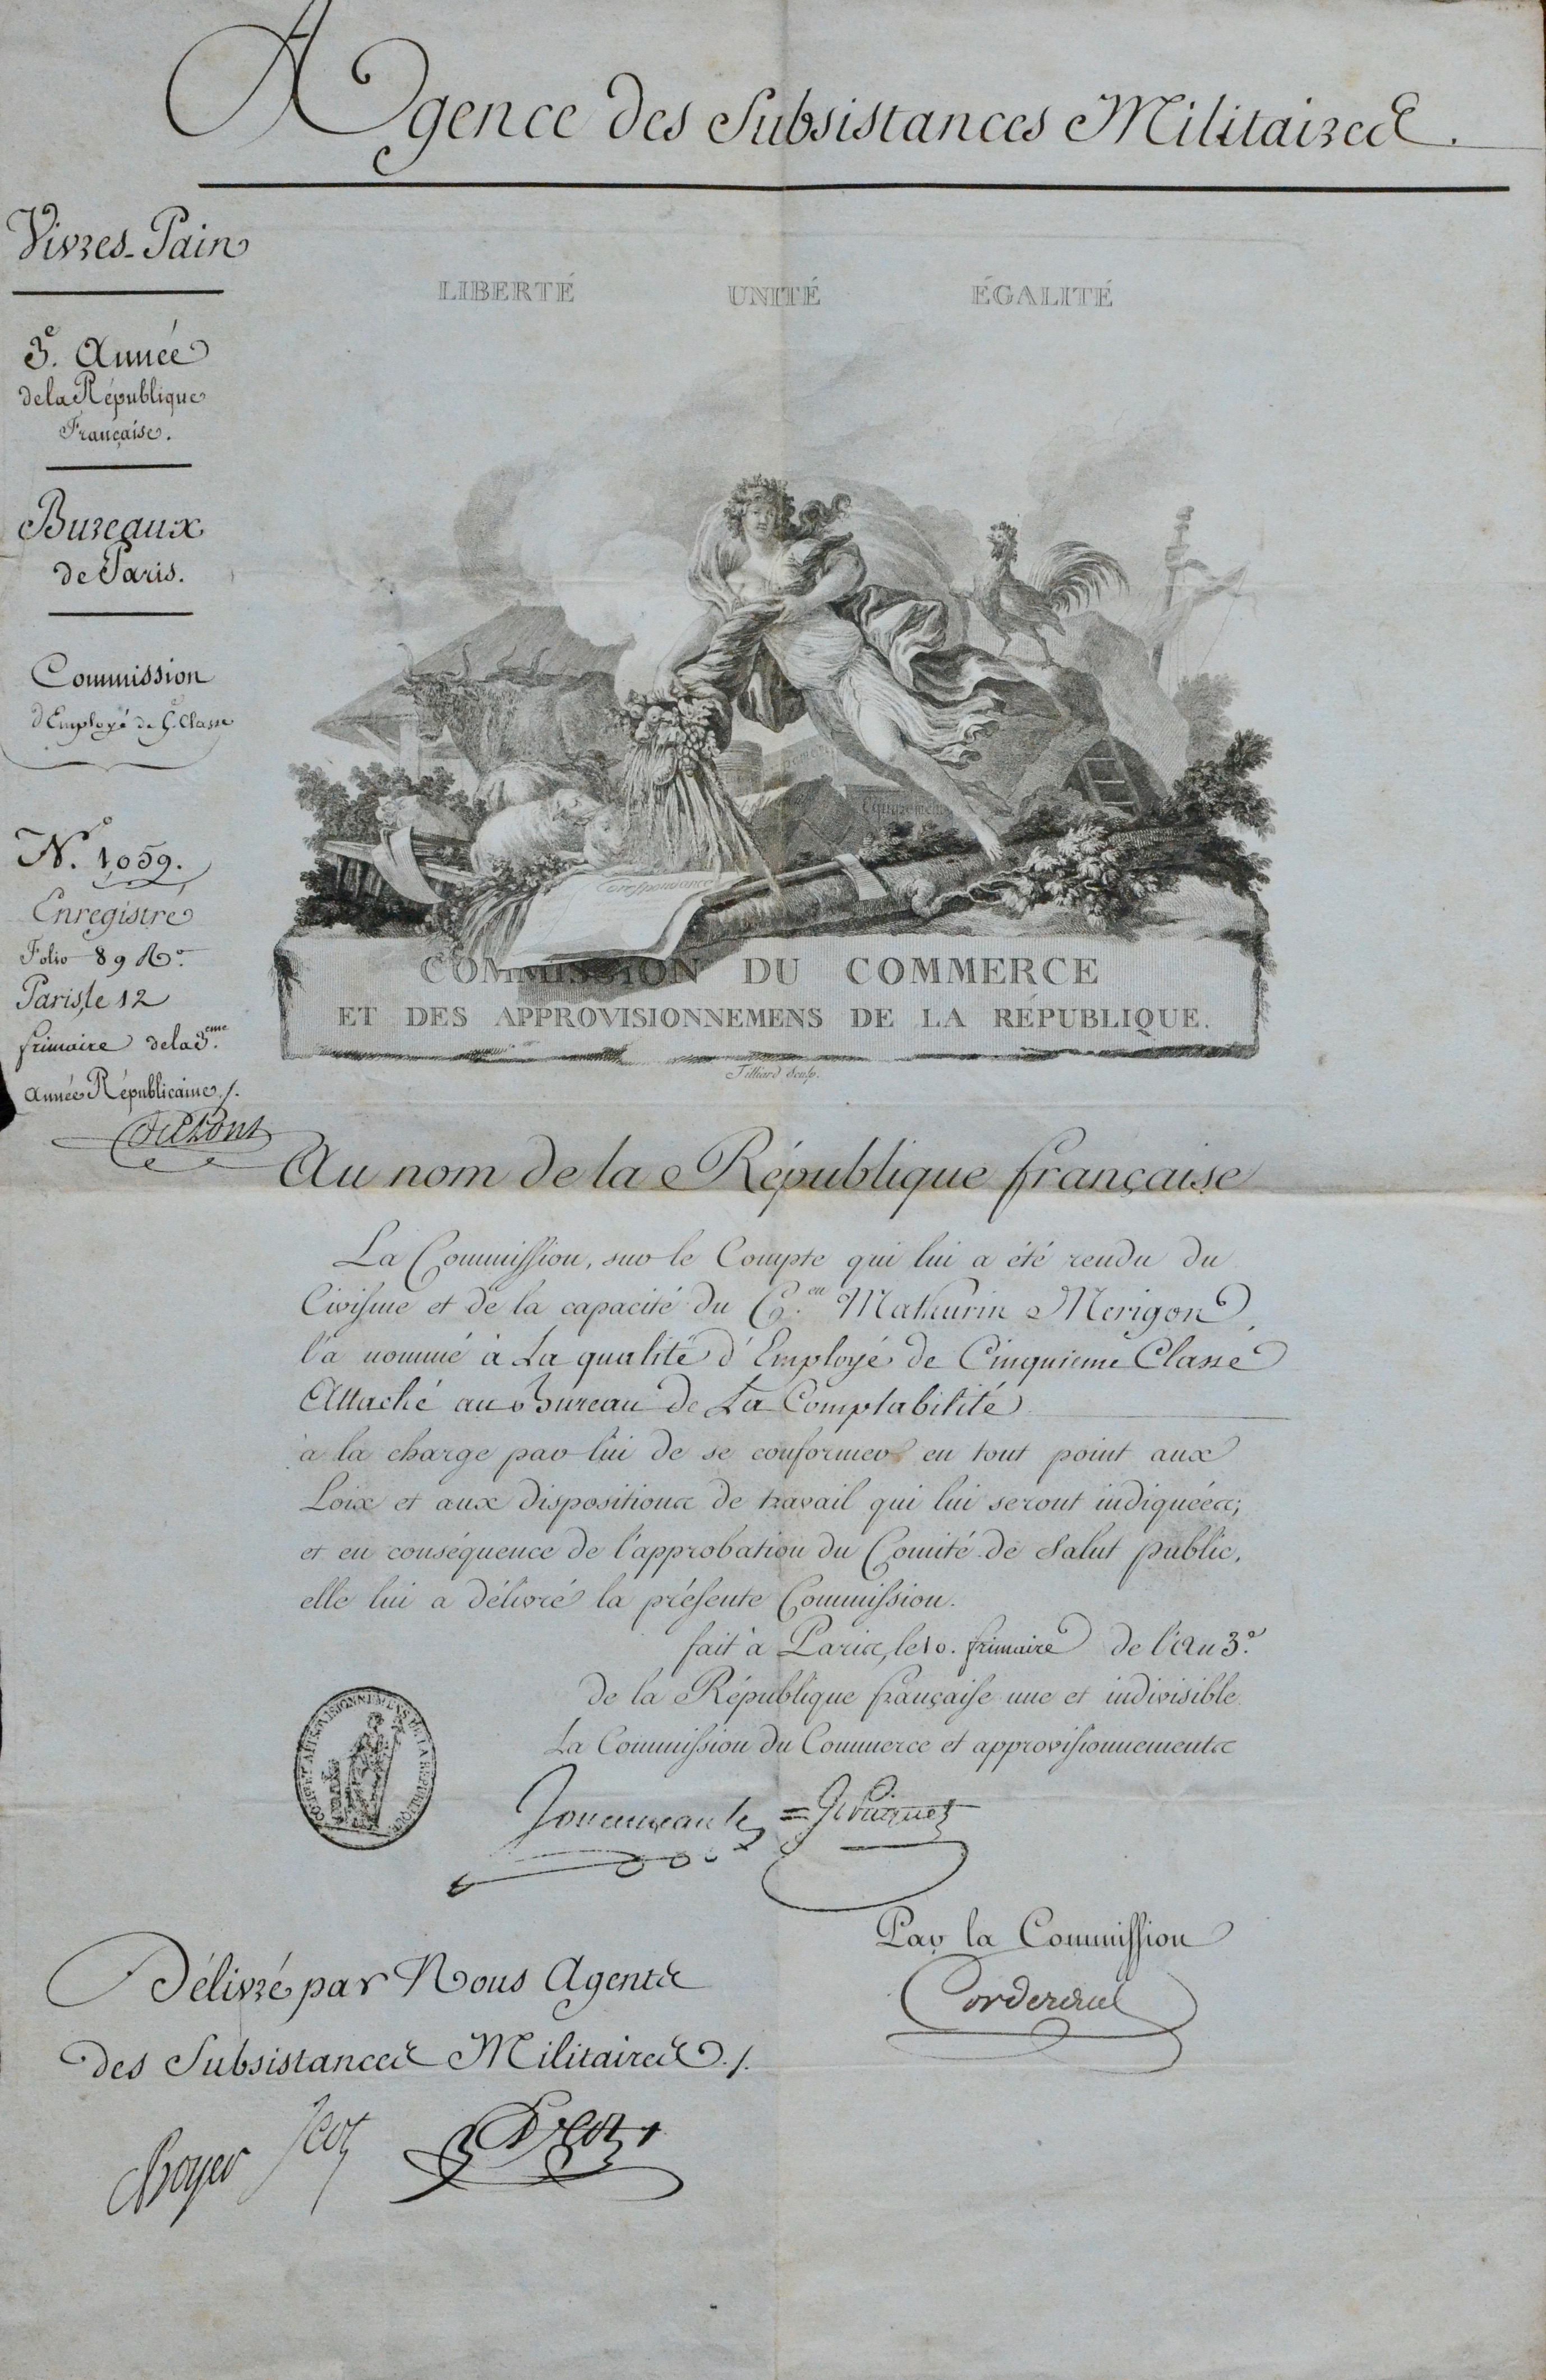 Agence des Subsistances Militaires.
Vivres-Pain
3.e Année
de la République
Française.
Bureaux
de Paris.
Commission
d'Employé de 5.e Classe
N.o 1059.
Enregistré
Folio 89 R.o
Paris, le 12
frimaire de la 3.eme
année Républicaine ./.
LIBERTÉ UNITÉ ÉGALITÉ
Équipement
Correspondance
COMMISSION DU COMMERCE
ET DES APPROVISIONNEMENS DE LA RÉPUBLIQUE.
Tilliard Sculp.
Au nom de la République française
La Commission, sur le Compte qui lui a été rendu du
Civisme et de la capacité du C.en Mathurin Merigon,
l'a nommé à La qualité d'Employé de Cinquieme Classe
Attaché au Bureau de La Comptabilité
à la charge par lui de se conformer en tout point aux
Loix et aux dispositions de travail qui lui seront indiquées;
et en conséquence de l'approbation du Comité de Salut public,
elle lui a délivré la présente Commission.
fait à Paris, le 10. frimaire de l'an 3.e
de la République française une et indivisible
La Commission du Commerce et approvisionnements
COM. DE COM. ET APPROVISIONNEMENS DE LA REPUBLIQUE
Jouenneault
Par la Commission
Cordereul
Délivré par Nous Agents
des Subsistances Militaires ./.
Boyer